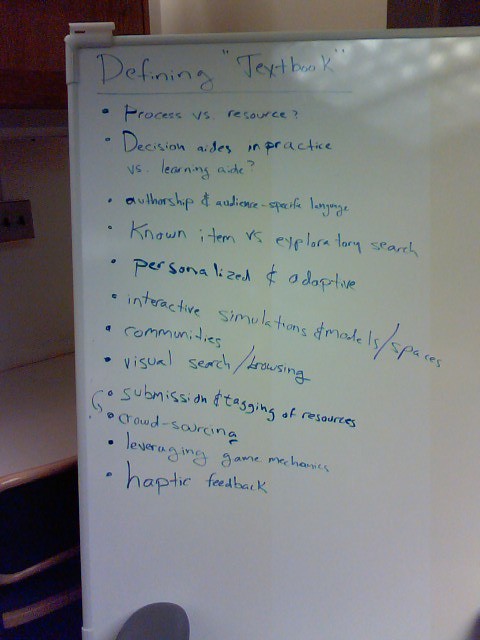 Defining "Textbook"
• Process vs resource?
• Decision aides in practice
vs. learning aide?
• authorship & audience-specific language
• Known item vs exploratory search
• personalized & adaptive
• interactive simulations & models/spaces
• communities
• visual search/browsing
• submission & tagging of resources
• crowd-sourcing
• leveraging game mechanics
• haptic feedback